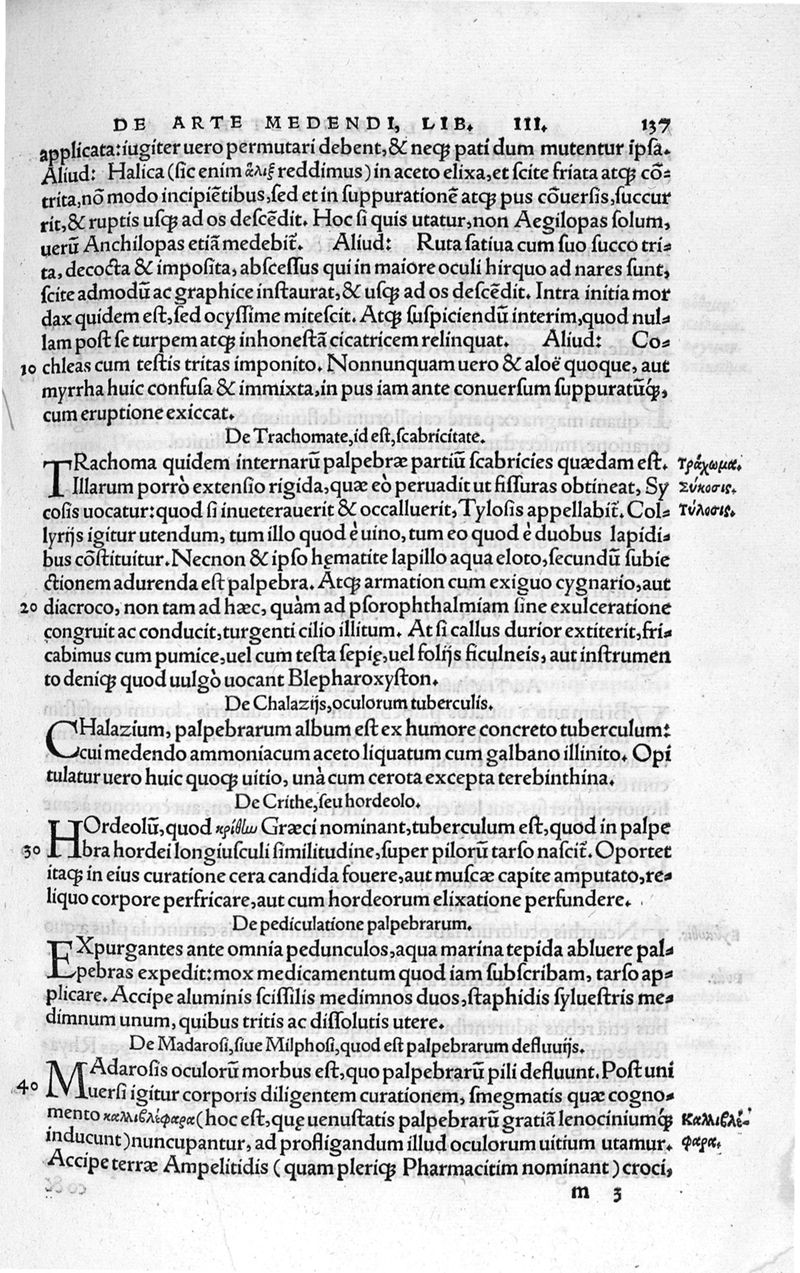 DE ARTE MEDENDI, LIB. III. 137
applicata: iugiter uero permutari debent, & neqꝫ pati dum mutentur ipsa.
Aliud: Halica (sic enim ἅλιξ reddimus) in aceto elixa, et scite friata atqꝫ cō=
trita, nō modo incipiētibus, sed et in suppurationē atqꝫ pus cōuersis, succur
rit, & ruptis usqꝫ ad os descēdit. Hoc si quis utatur, non Aegilopas solum,
uerū Anchilopas etiā medebit̄. Aliud: Ruta satiua cum suo succo tri=
ta, decocta & imposita, abscessus qui in maiore oculi hirquo ad nares sunt,
scite admodū ac graphice instaurat, & usqꝫ ad os descēdit. Intra initia mor
dax quidem est, sed ocyssime mitescit. Atqꝫ suspiciendū interim, quod nul=
lam post se turpem atqꝫ inhonestā cicatricem relinquat. Aliud: Co=
10 chleas cum testis tritas imponito. Nonnunquam uero & aloë quoque, aut
myrrha huic confusa & immixta, in pus iam ante conuersum suppuratūqꝫ,
cum eruptione exiccat.
De Trachomate, id est, scabricitate.
TRachoma quidem internarū palpebræ partiū scabricies quædam est. Τράχωμα.
Illarum porrò extensio rigida, quæ eò peruadit ut fissuras obtineat, Sy Σύκοσις.
cosis uocatur: quod si inueterauerit & occalluerit, Tylosis appellabit̄. Col= Τύλοσις.
lyrijs igitur utendum, tum illo quod è uino, tum eo quod è duobus lapidi=
bus cōstituitur. Necnon & ipso hęmatite lapillo aqua eloto, secundū subie
ctionem adurenda est palpebra. Atqꝫ armation cum exiguo cygnario, aut
20 diacroco, non tam ad hæc, quàm ad psorophthalmiam sine exulceratione
congruit ac conducit, turgenti cilio illitum. At si callus durior extiterit, fri=
cabimus cum pumice, uel cum testa sepię, uel folijs ficulneis, aut instrumen
to deniqꝫ quod uulgò uocant Blepharoxyston.
De Chalazijs, oculorum tuberculis.
CHalazium, palpebrarum album est ex humore concreto tuberculum:
cui medendo ammoniacum aceto liquatum cum galbano illinito. Opi
tulatur uero huic quoqꝫ uitio, unà cum cerota excepta terebinthina.
De Crithe, seu hordeolo.
HOrdeolū, quod κριθὼ Græci nominant, tuberculum est, quod in palpe
30 bra hordei longiusculi similitudine, super pilorū tarso nascit̄. Oportet
itaqꝫ in eius curatione cera candida fouere, aut muscæ capite amputato, re=
liquo corpore perfricare, aut cum hordeorum elixatione perfundere.
De pediculatione palpebrarum.
EXpurgantes ante omnia pedunculos, aqua marina tepida abluere pal=
pebras expedit: mox medicamentum quod iam subscribam, tarso ap=
plicare. Accipe aluminis scissilis medimnos duos, staphidis syluestris me=
dimnum unum, quibus tritis ac dissolutis utere.
De Madarosi, siue Milphosi, quod est palpebrarum defluuijs.
MAdarosis oculorū morbus est, quo palpebrarū pili defluunt. Post uni
40 uersi igitur corporis diligentem curationem, smegmatis quæ cogno=
mento καλλιβλέφαρα (hoc est, quę uenustatis palpebrarū gratiā lenociniumqꝫ Καλλιβλέ=
inducunt) nuncupantur, ad profligandum illud oculorum uitium utamur. φαρα.
Accipe terræ Ampelitidis (quam pleriqꝫ Pharmacitim nominant) croci,
m 3